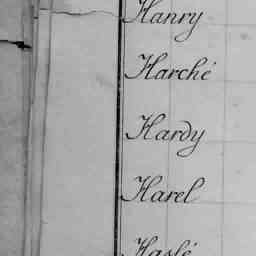 Hanry
Harché
Hardy
Harel
Haslé